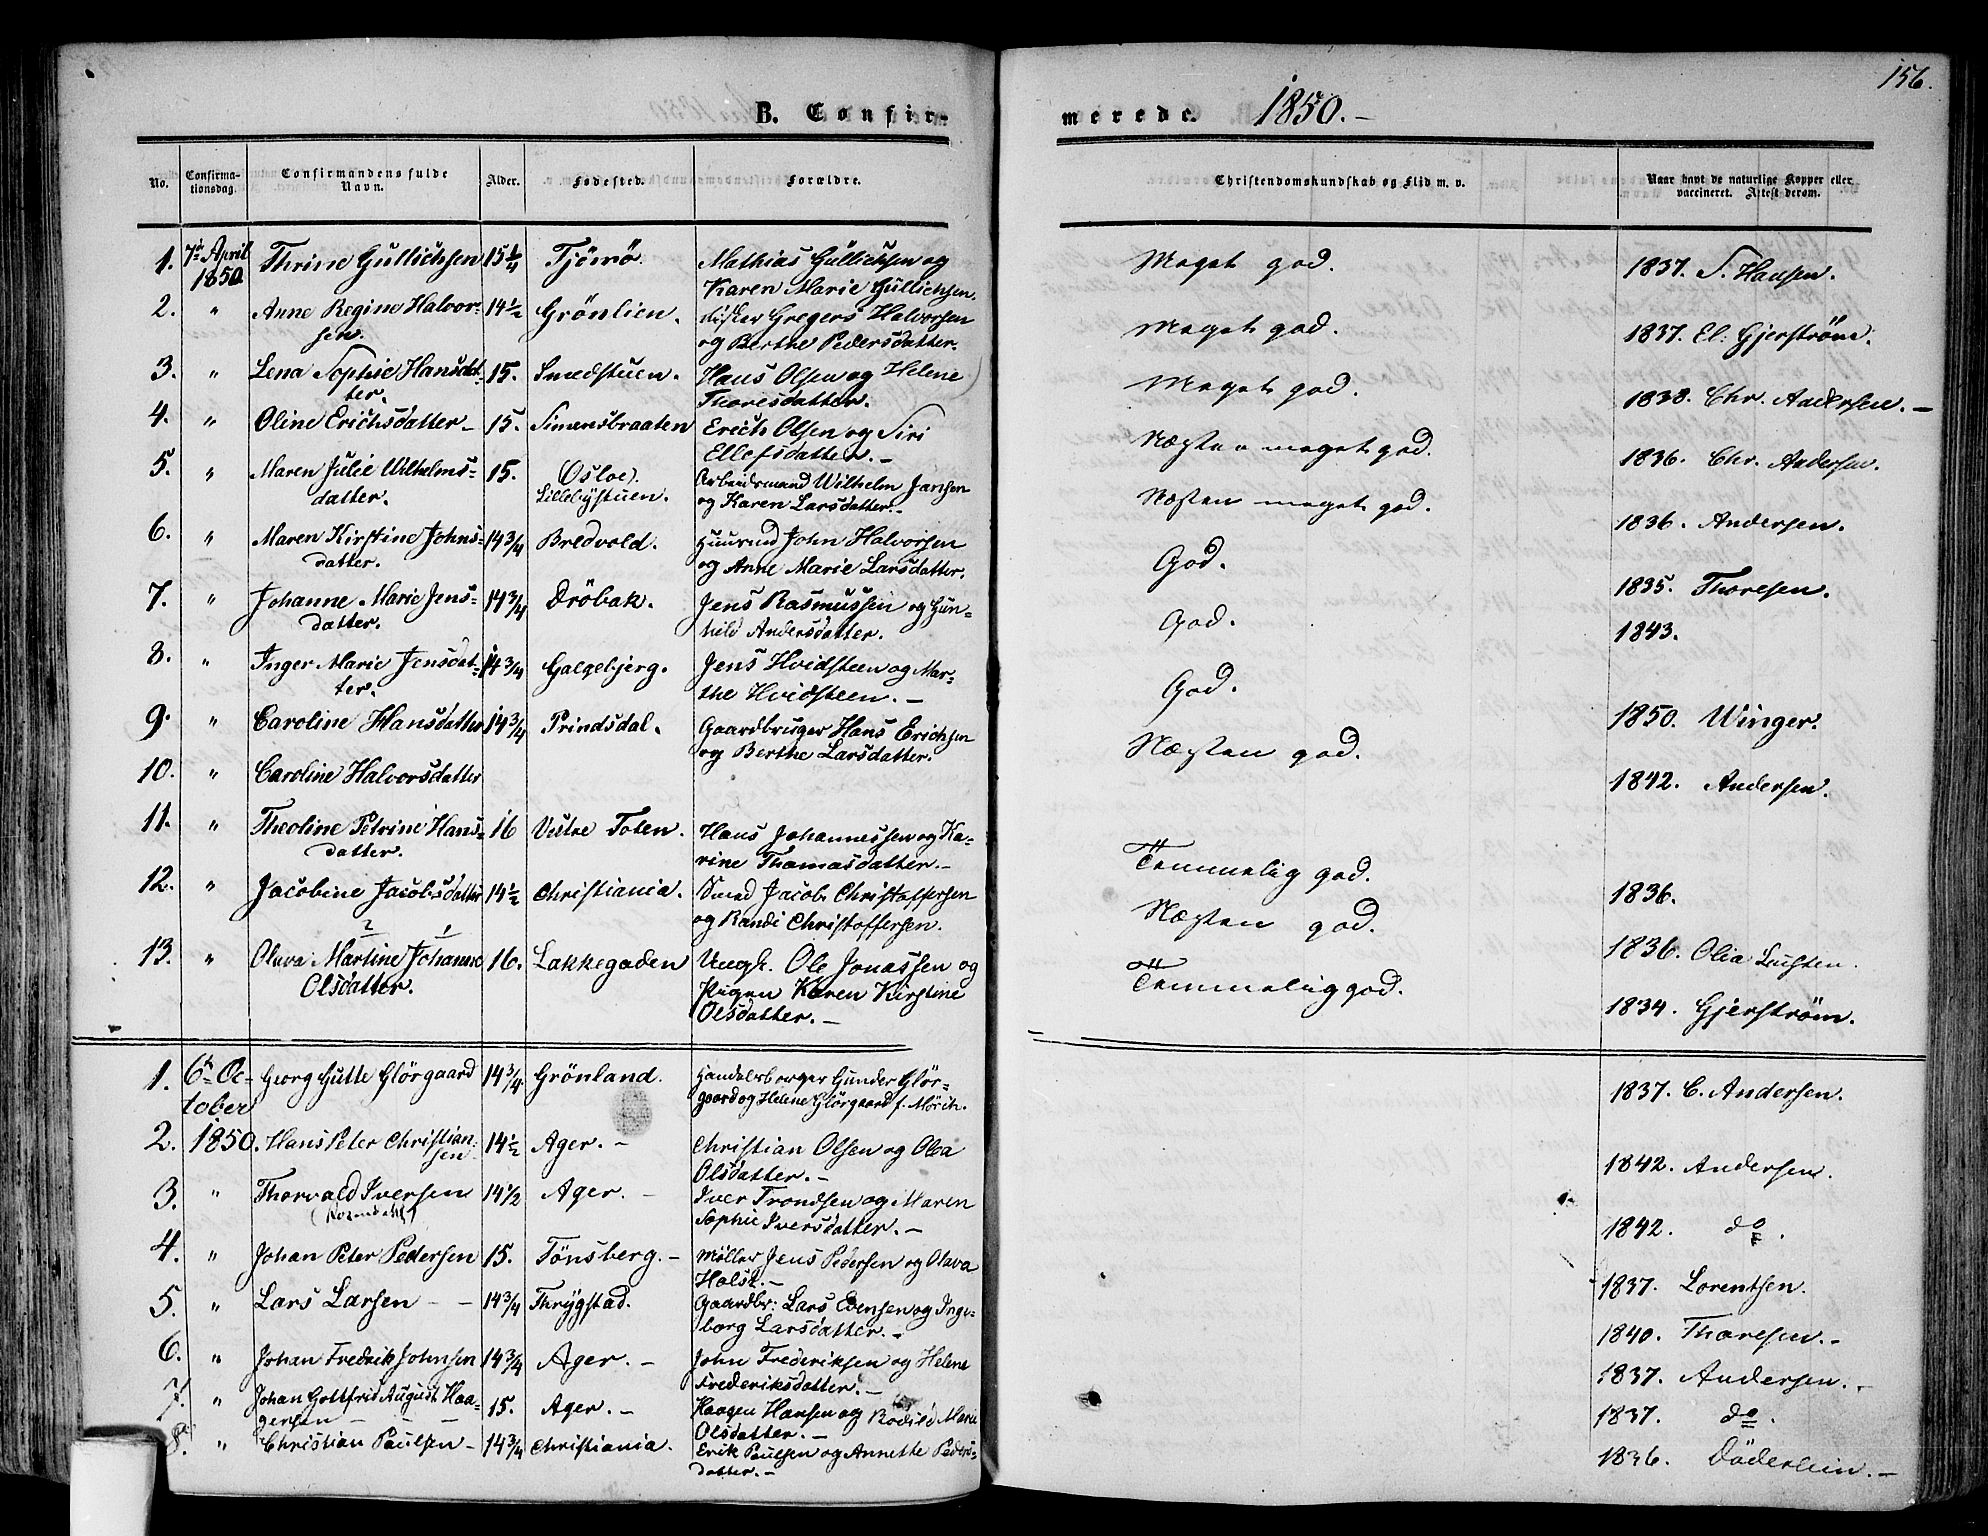 156.
B. Confirmerede. 1850.-
No.
Confirmationsdag.
Confirmandens fulde Navn.
Alder.
Fødested.
Forældre.
Christendomskundskab og Flid m. v.
Naar havt de naturlige Kopper eller vaccineret. Attest derom.
1. 7de April 1850 Thrine Gullichsen 15 1/4 Tjömö. Mathias Gullichsen og Karen Marie Gullichsen. Meget god. 1837. S. Hansen.
2. " Anne Regine Halvorsen. 14 1/2 Grönlien. Fisker Gregers Halvorsen og Berthe Pedersdatter. Meget god. 1837. El: Gjerström.
3. " Lena Sophie Hansdatter. 15. Smedstuen. Hans Olsen og Helene Thoresdatter. Meget god. 1838. Chr. Andersen.-
4. " Oline Erichsdatter- 15. Simensbraaten Erich Olsen og Siri Ellefsdatter.- Næsten meget god. 1836. Chr. Andersen.
5. " Maren Julie Wilhelmsdatter. 15. Osloe). Lillebystuen. Arbeidsmand Wilhelm Jansen og Karen Larsdatter.- Næsten meget god. 1836. Andersen.
6. " Maren Kirstine Johnsdatter. 14 3/4 Bredvold. Huusmd John Halvorsen og Anne Marie Larsdatter. God. 1835. Thoresen.
7. " Johanne Marie Jensdatter. 14 3/4 Dröbak. Jens Rasmussen og Gunhild Andersdatter. God. 1843.
8. " Inger Marie Jensdatter. 14 3/4 Galgebjerg. Jens Hvidsteen og Marthe Hvidsteen.- God. 1850. Winger.
9. " Caroline Hansdatter 14 3/4 Prindsdal. Gaardbruger Hans Erichsen og Berthe Larsdatter. Næsten god. 1842. Andersen.
10. " Caroline Halvorsdatter
11. " Theoline Petrine Hansdatter. 16 Vestre Toten. Hans Johannessen og Karine Thomasdatter.- Temmelig god. 1836.
12. " Jacobine Jacobsdatter 14 1/2 Christiania. Smed Jacob Christoffersen og Randi Christoffersen. Næsten god. 1836. Olia
13. " Olava Martine Johanne Olsdatter. 16. Lakkegaden Ungk. Ole Jonassen og Pigen Karen Kirstine Olsdatter.- Temmelig god. 1834. Gjerström.
1. 6te October 1850. Georg Gutte Glörgaard 14 3/4 Grönland. Handelsborger Gunder Glörgaard og Helene Glörgaard f. Mörch. 1837. C. Andersen.
2. Hans Peter Christiansen 14 1/2 Ager.- Christian Olsen og Olva Olsdatter.- 1842. Andersen.
3. " Thorvald Iversen 14 1/2 Ager.- Iver Trondsen og Maren Sophie Iversdatter.- 1842. do.
4. " Johan Peter Pedersen 15. Tönsberg.- Möller Jens Pedersen og Olava Holst.- 1837. Lorentsen.
5. " Lars Larsen - - 14 3/4 Thrygstad. Gaardbr: Lars Evensen og Ingeborg Larsdatter.- 1840. Thoresen.-
6. " Johan Fredrik Johnsen 14 3/4 Ager.- John Frederiksen og Helene Frederiksdatter.- 1837. Andersen.-
7. " Johan Gottfried August Haagensen - - - 15. Ager.- Haagen Hansen og Bodild Marie Olsdatter.- 1837. do.
8. " Christian Paulsen- 14 3/4 Christiania. Erik Paulsen og Annette Pedersdatter.- 1836. Döderlein.-